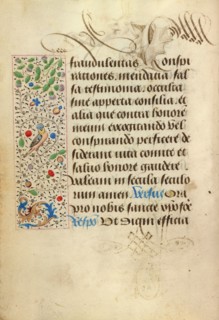 fraudulentas conspi
rationes, mendacia fal
sa testimonia, occulta
siue apperta consilia, et
alia que contra honore
meum excogitando vel
conspirando perficere de
siderant vita comite et
saluo honore gaudere
valeam in secula seculo
rum amen Versus Ora
pro nobis sancte
Respo Vt digni efficia